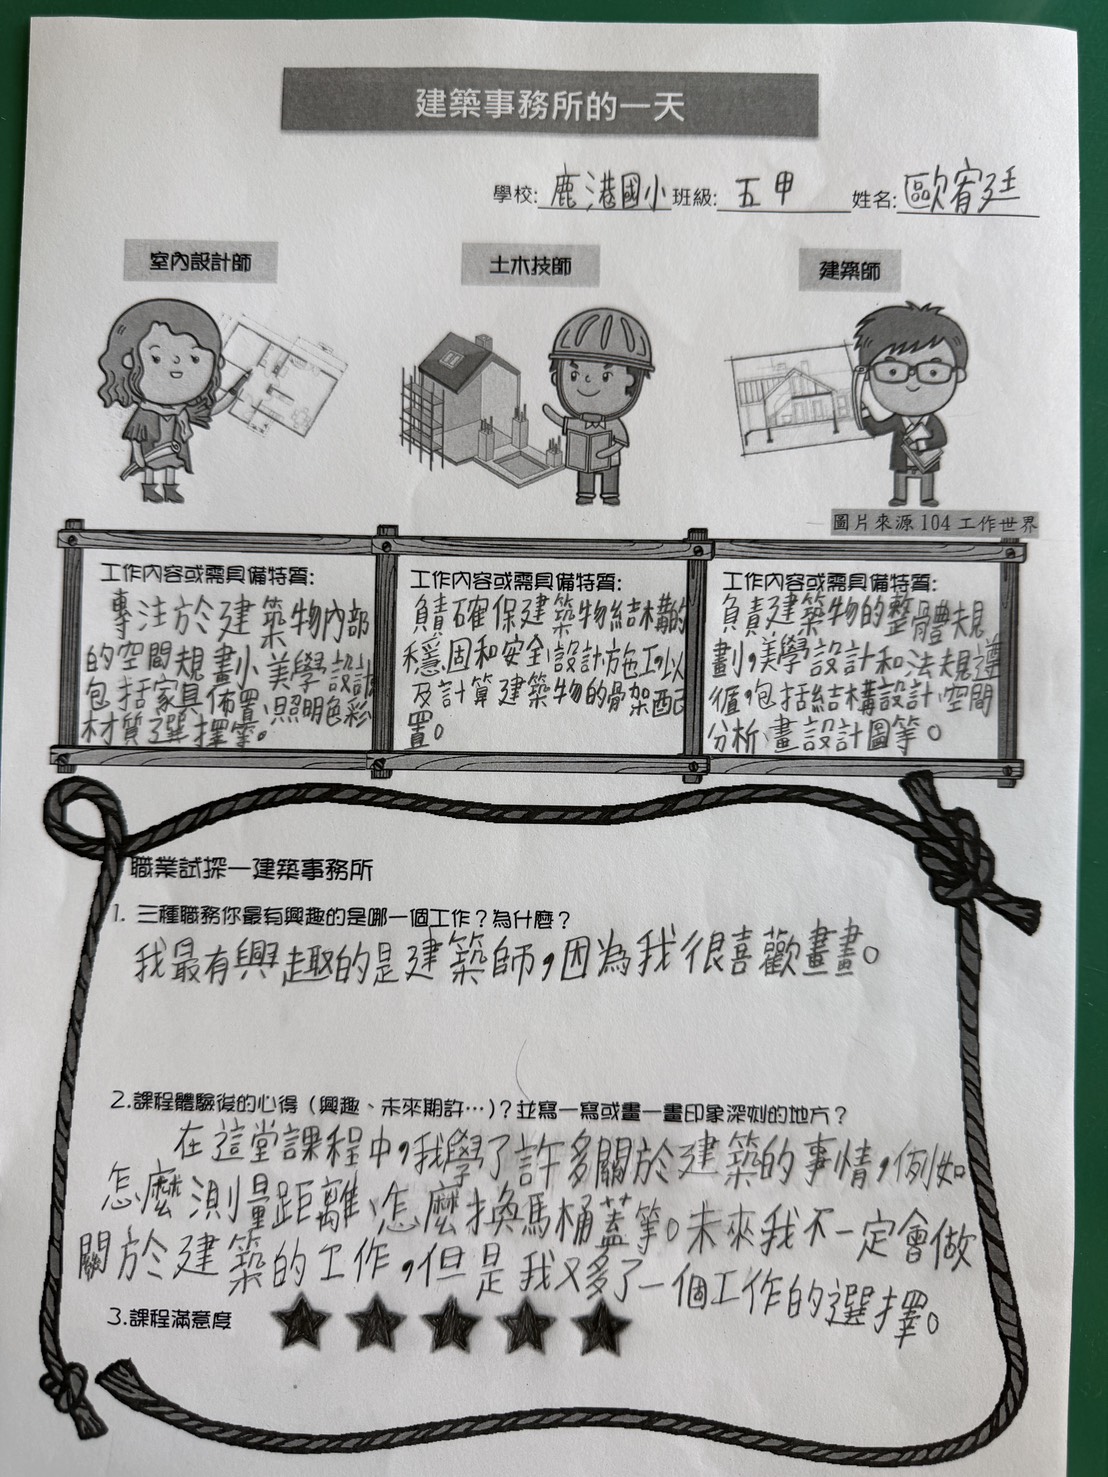 建築事務所的一天
學校:鹿港國小班級:五甲 姓名:歐宥廷
室內設計師
土木技師
建築師
圖片來源 104 工作世界
工作內容或需具備特質:
專注於建築物內部
的空間規劃、美學設計
包括家具佈置、照明色彩
材質選擇等。
工作內容或需具備特質:
負責確保建築物結構的
穩固和安全、設計、施工,以
及計算建築物的骨架配
置。
工作內容或需具備特質:
負責建築物的整體規
劃,美學設計和法規遵
循,包括結構設計、空間
分析、畫設計圖等。
職業試探—建築事務所
1. 三種職務你最有興趣的是哪一個工作?為什麼?
我最有興趣的是建築師,因為我很喜歡畫畫。
2.課程體驗後的心得(興趣、未來期許…)?並寫一寫或畫一畫印象深刻的地方?
在這堂課程中,我學了許多關於建築的事情,例如
怎麼測量距離、怎麼換馬桶蓋等。未來我不一定會做
關於建築的工作,但是我又多了一個工作的選擇。
3.課程滿意度